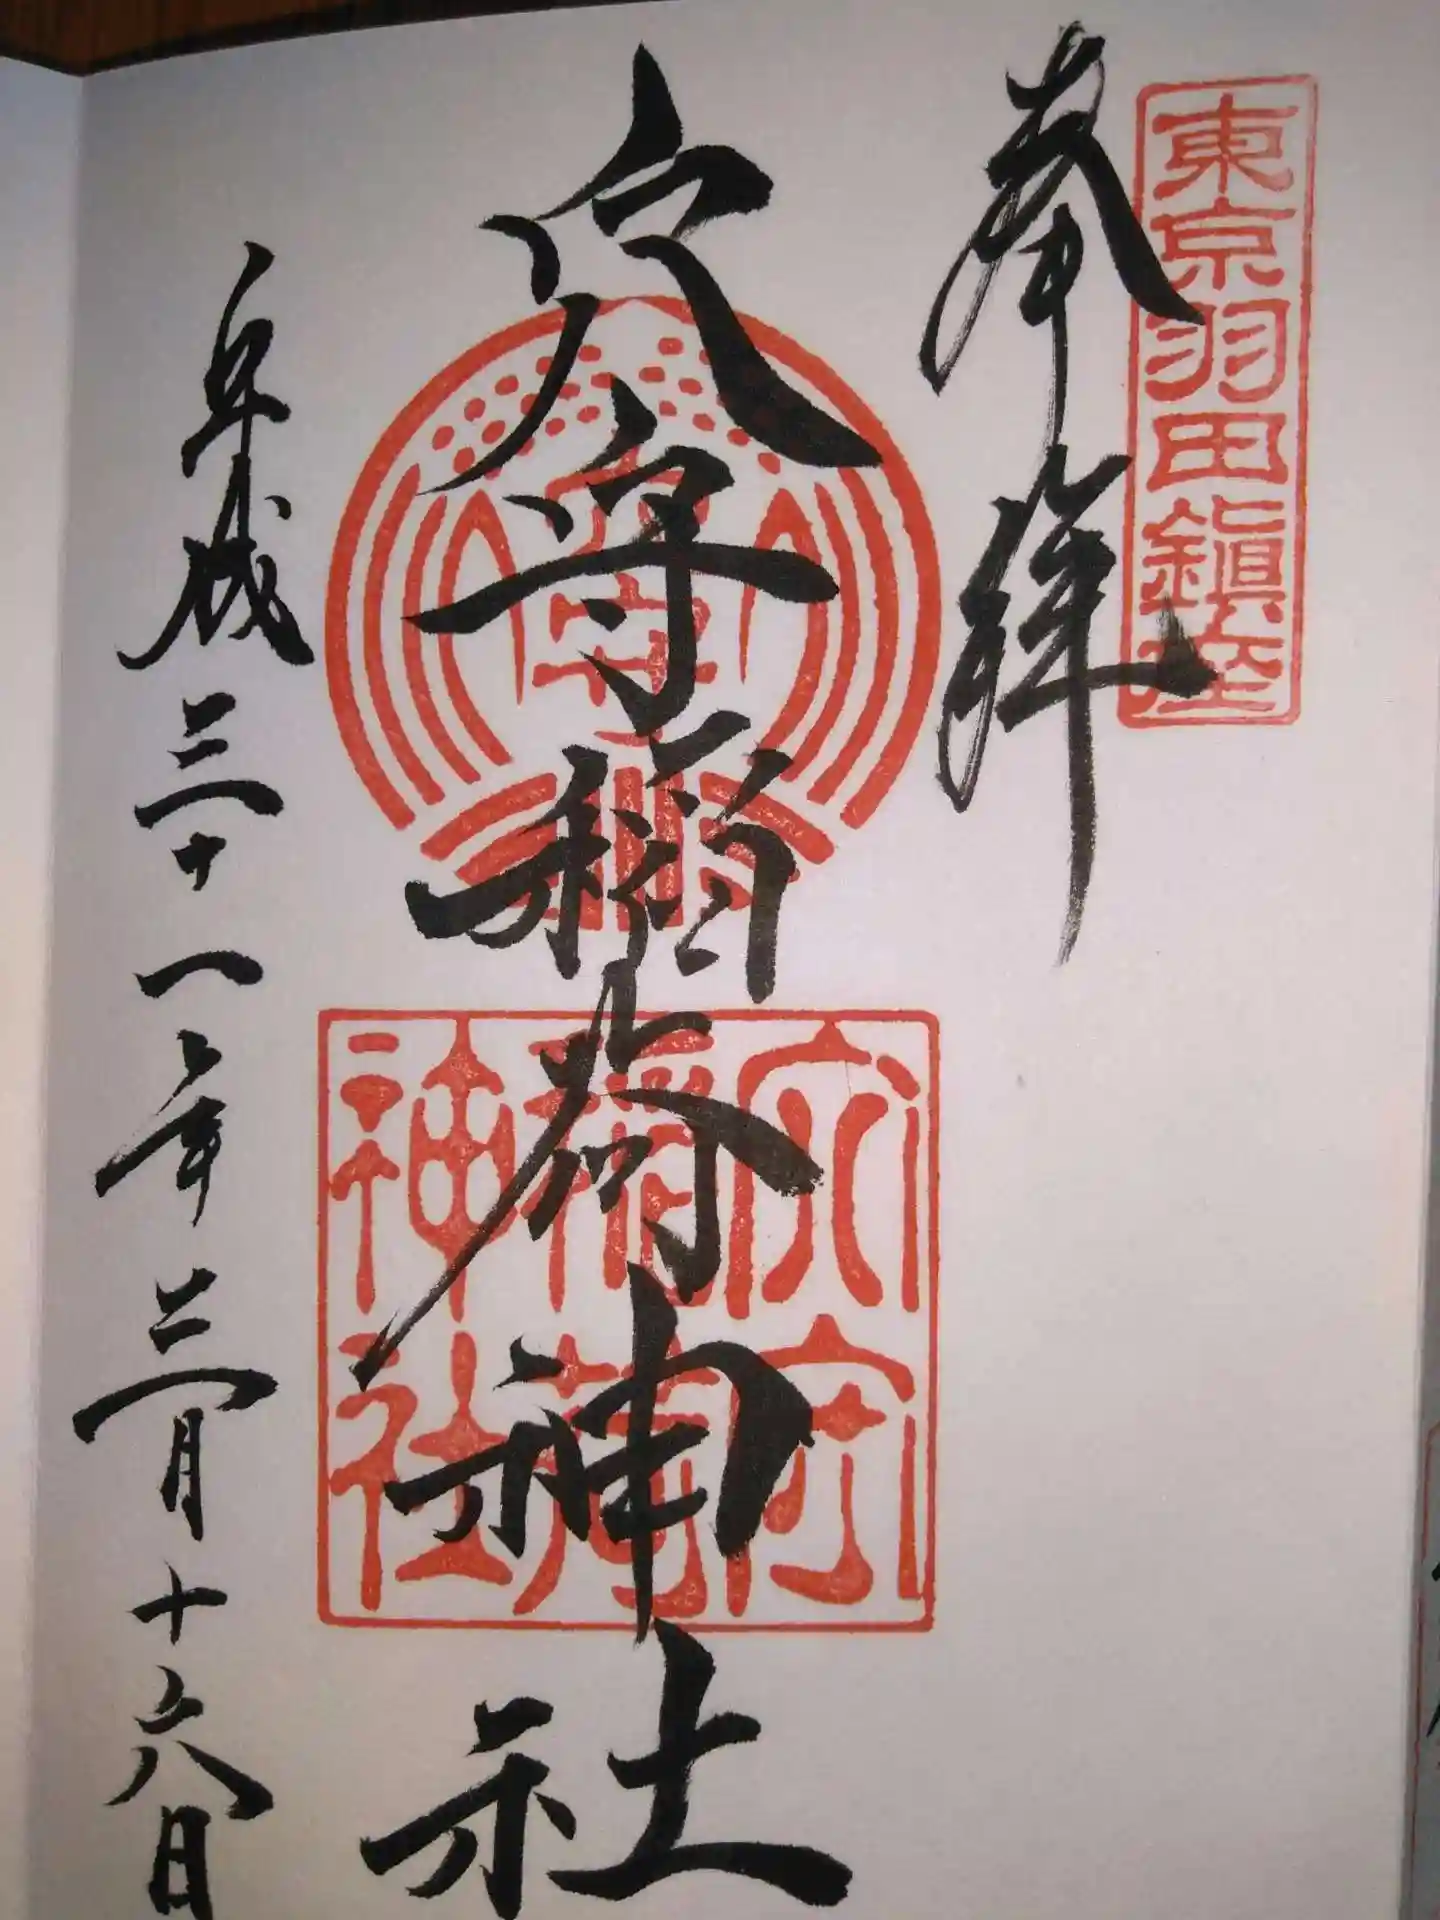 東京羽田鎮座
奉拝
穴守稲荷神社
穴守
穴守
稲荷
神社
平成三十一年三月十六日